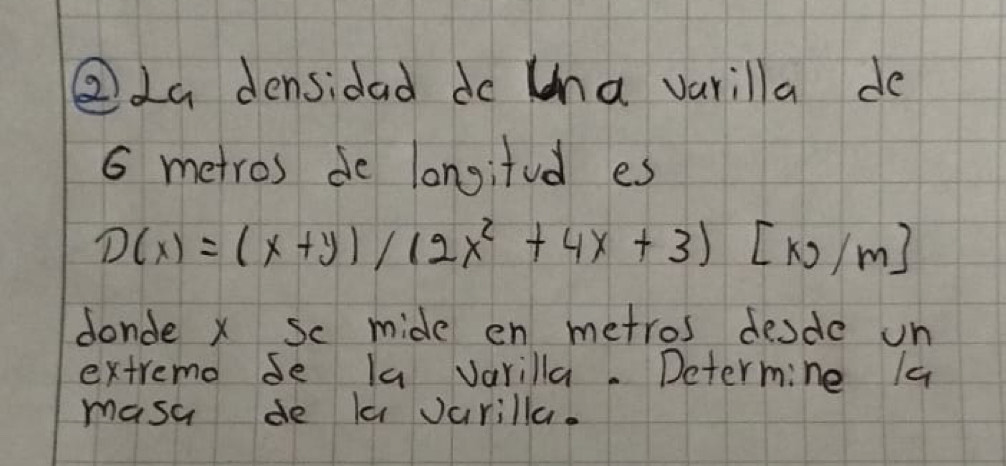 ② La densidad de una varilla de
6 metros de longitud es
D(x) = (x + y) / (2x² + 4x + 3) [kg/m]
donde x se mide en metros desde un
extremo de la varilla. Determine la
masa de la varilla.